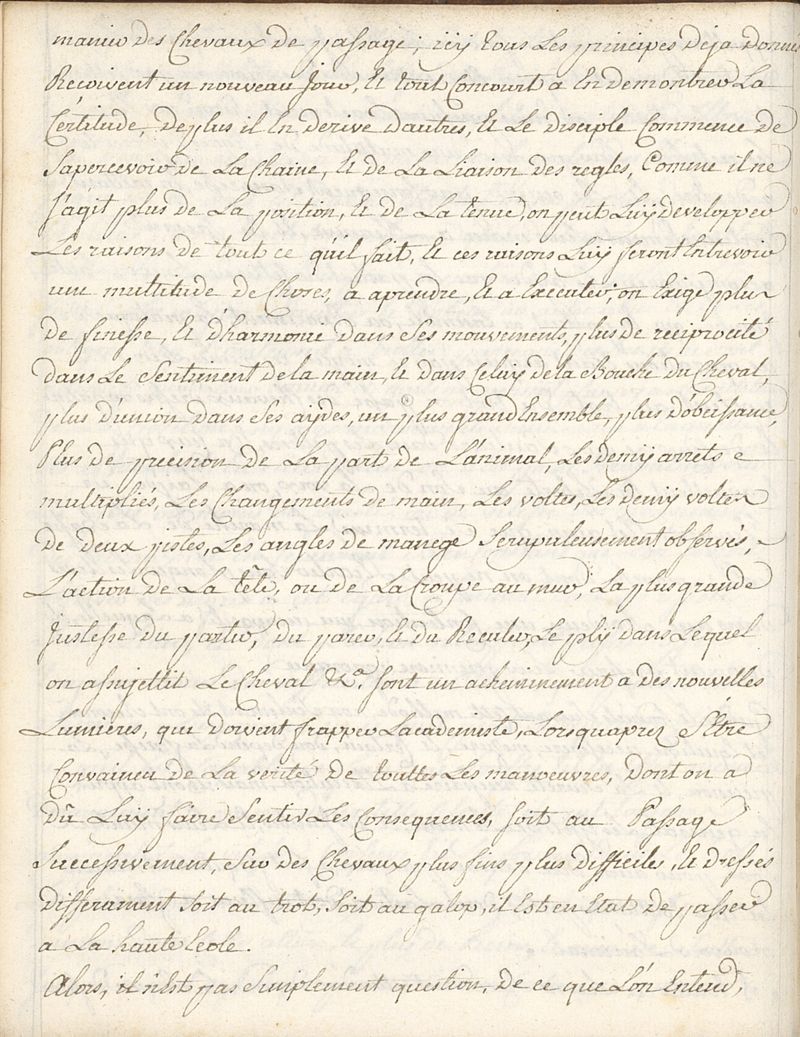 manier des Chevaux de passage; icy tous Les principes deja donnés
Recoivent un nouveau Jour, Et tout Concourt a En demontrer La
Cértitude, de plus il En derive d'autres, Et Le disciple Commence de
Sapercevoir de La Chaine, Et de La Liaison des regles, Comme il ne
s'agit plus de La position, Et de La tenue, on peut Luy developper
Les raisons de tout ce qu'il fait, Et ces raisons Luy feront Entrevoir
une multitude de Choses, a aprendre, Et a Executer; on Exige plus
de finesse, Et d'harmonie dans Ses mouvements, plus de reciprocité
dans Le Sentiment de la main, Et dans Celuy de la Bouche du Cheval,
plus d'union dans Ses aydes, un plus grand Ensemble, plus d'obeissance,
Plus de precision de La part de L'animal, Les demy arrets
multipliés, Les Changements de main, Les voltes, Les demy voltes
de deux pistes, Les angles de manege Scrupuleusement observés,
L'action de La tête, ou de La Croupe au mur, La plus grande
Justesse du partir, du parer, Et du Reculer, Le ply dans Lequel
on assujettit Le Cheval &ca. sont un acheminement a des nouvelles
Lumières, qui doivent frapper Lacademiste, Lorsquaprez S'Etre
Convaincu de La verité de touttes Les manoeuvres, dont on a
dû Luy faire Sentir Les Consequences, soit au Passage
Successivement, Sur des Chevaux plus fins plus difficiles, Et dressés
differament soit au trot, soit au galop, il Est en Etat de passer
a La haute Ecole.
Alors, il n'Est pas Simplement question, de ce que L'on Entend,